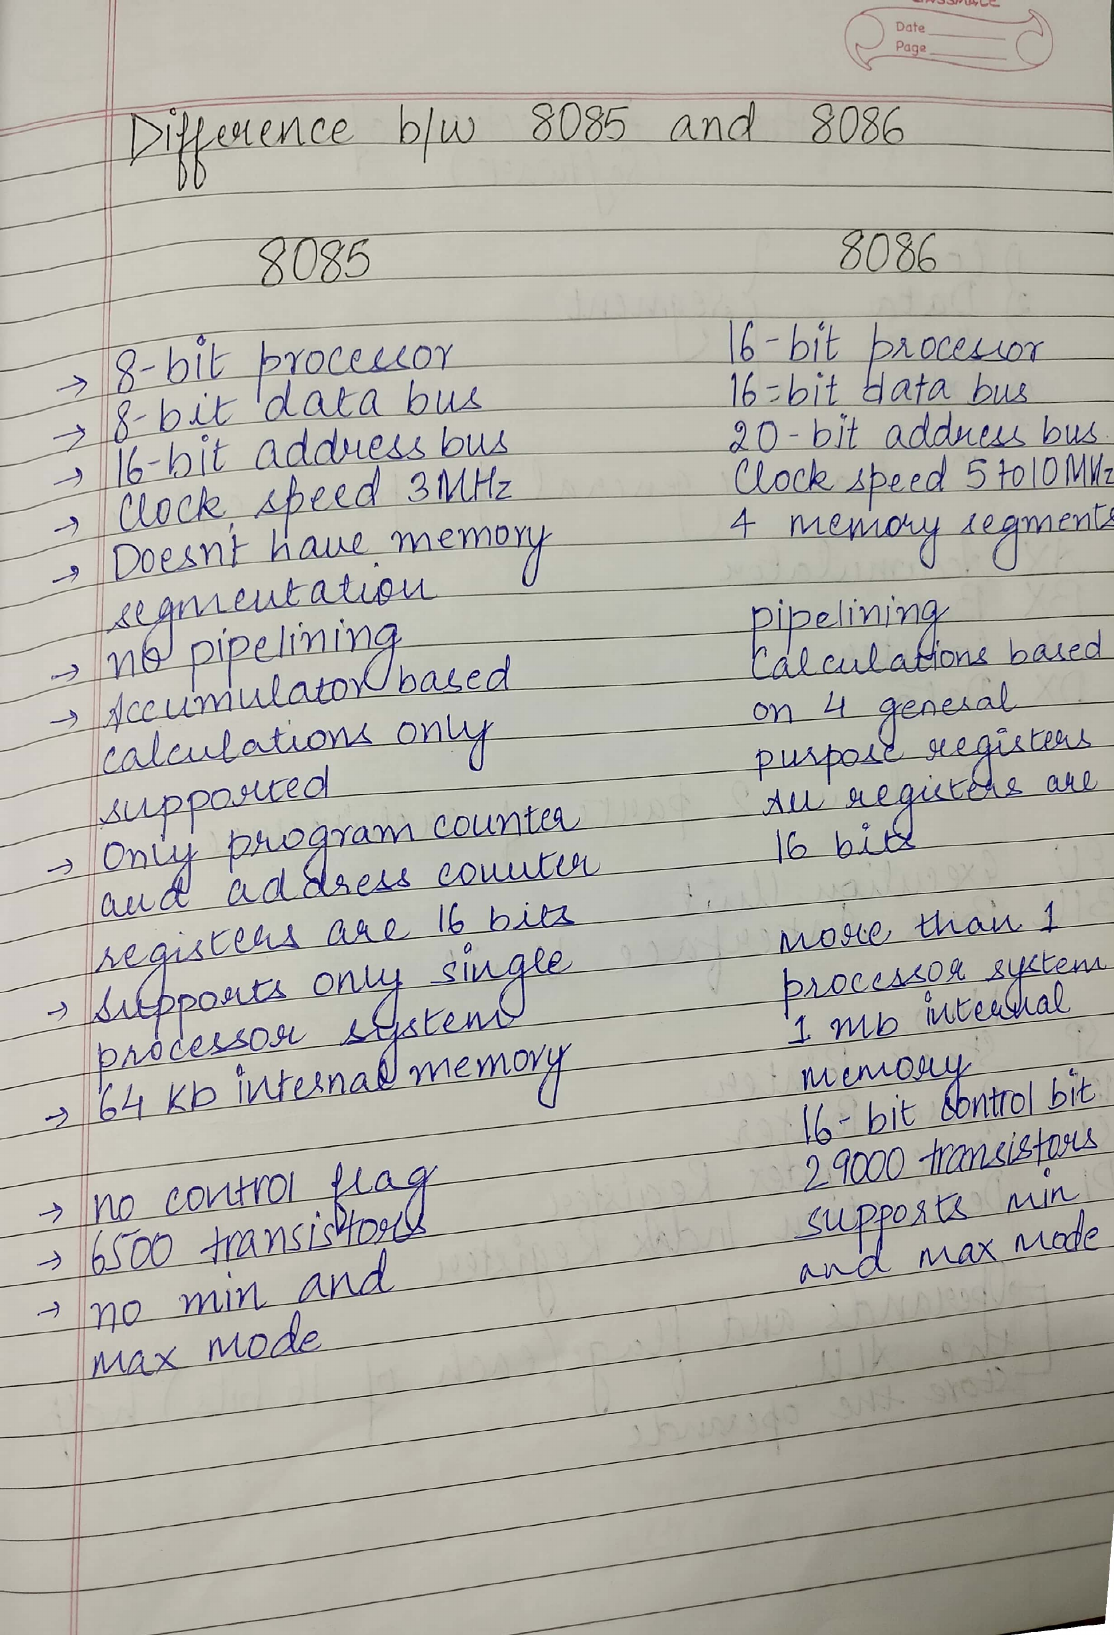 classmate
Date
Page
Difference b/w 8085 and 8086
8085
→ 8-bit processor
→ 8-bit data bus
→ 16-bit address bus
→ Clock speed 3MHz
→ Doesn't have memory
segmentation
→ no pipelining
→ Accumulator based
calculations only
supported
→ Only program counter
and address counter
registers are 16 bits
→ Supports only single
processor system
→ 64 Kb internal memory
→ no control flag
→ 6500 transistors
→ no min and
max mode
8086
16-bit processor
16-bit data bus
20-bit address bus.
Clock speed 5 to 10 MHz
4 memory segments
pipelining
Calculations based
on 4 general
purpose registers
All registers are
16 bits
more than 1
processor system
1 mb internal
memory
16-bit control bit
29000 transistors
supports min
and max mode